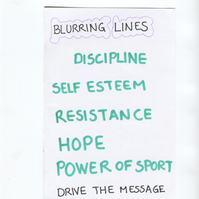 BLURRING LINES
DISCIPLINE
SELF ESTEEM
RESISTANCE
HOPE
POWER OF SPORT
DRIVE THE MESSAGE